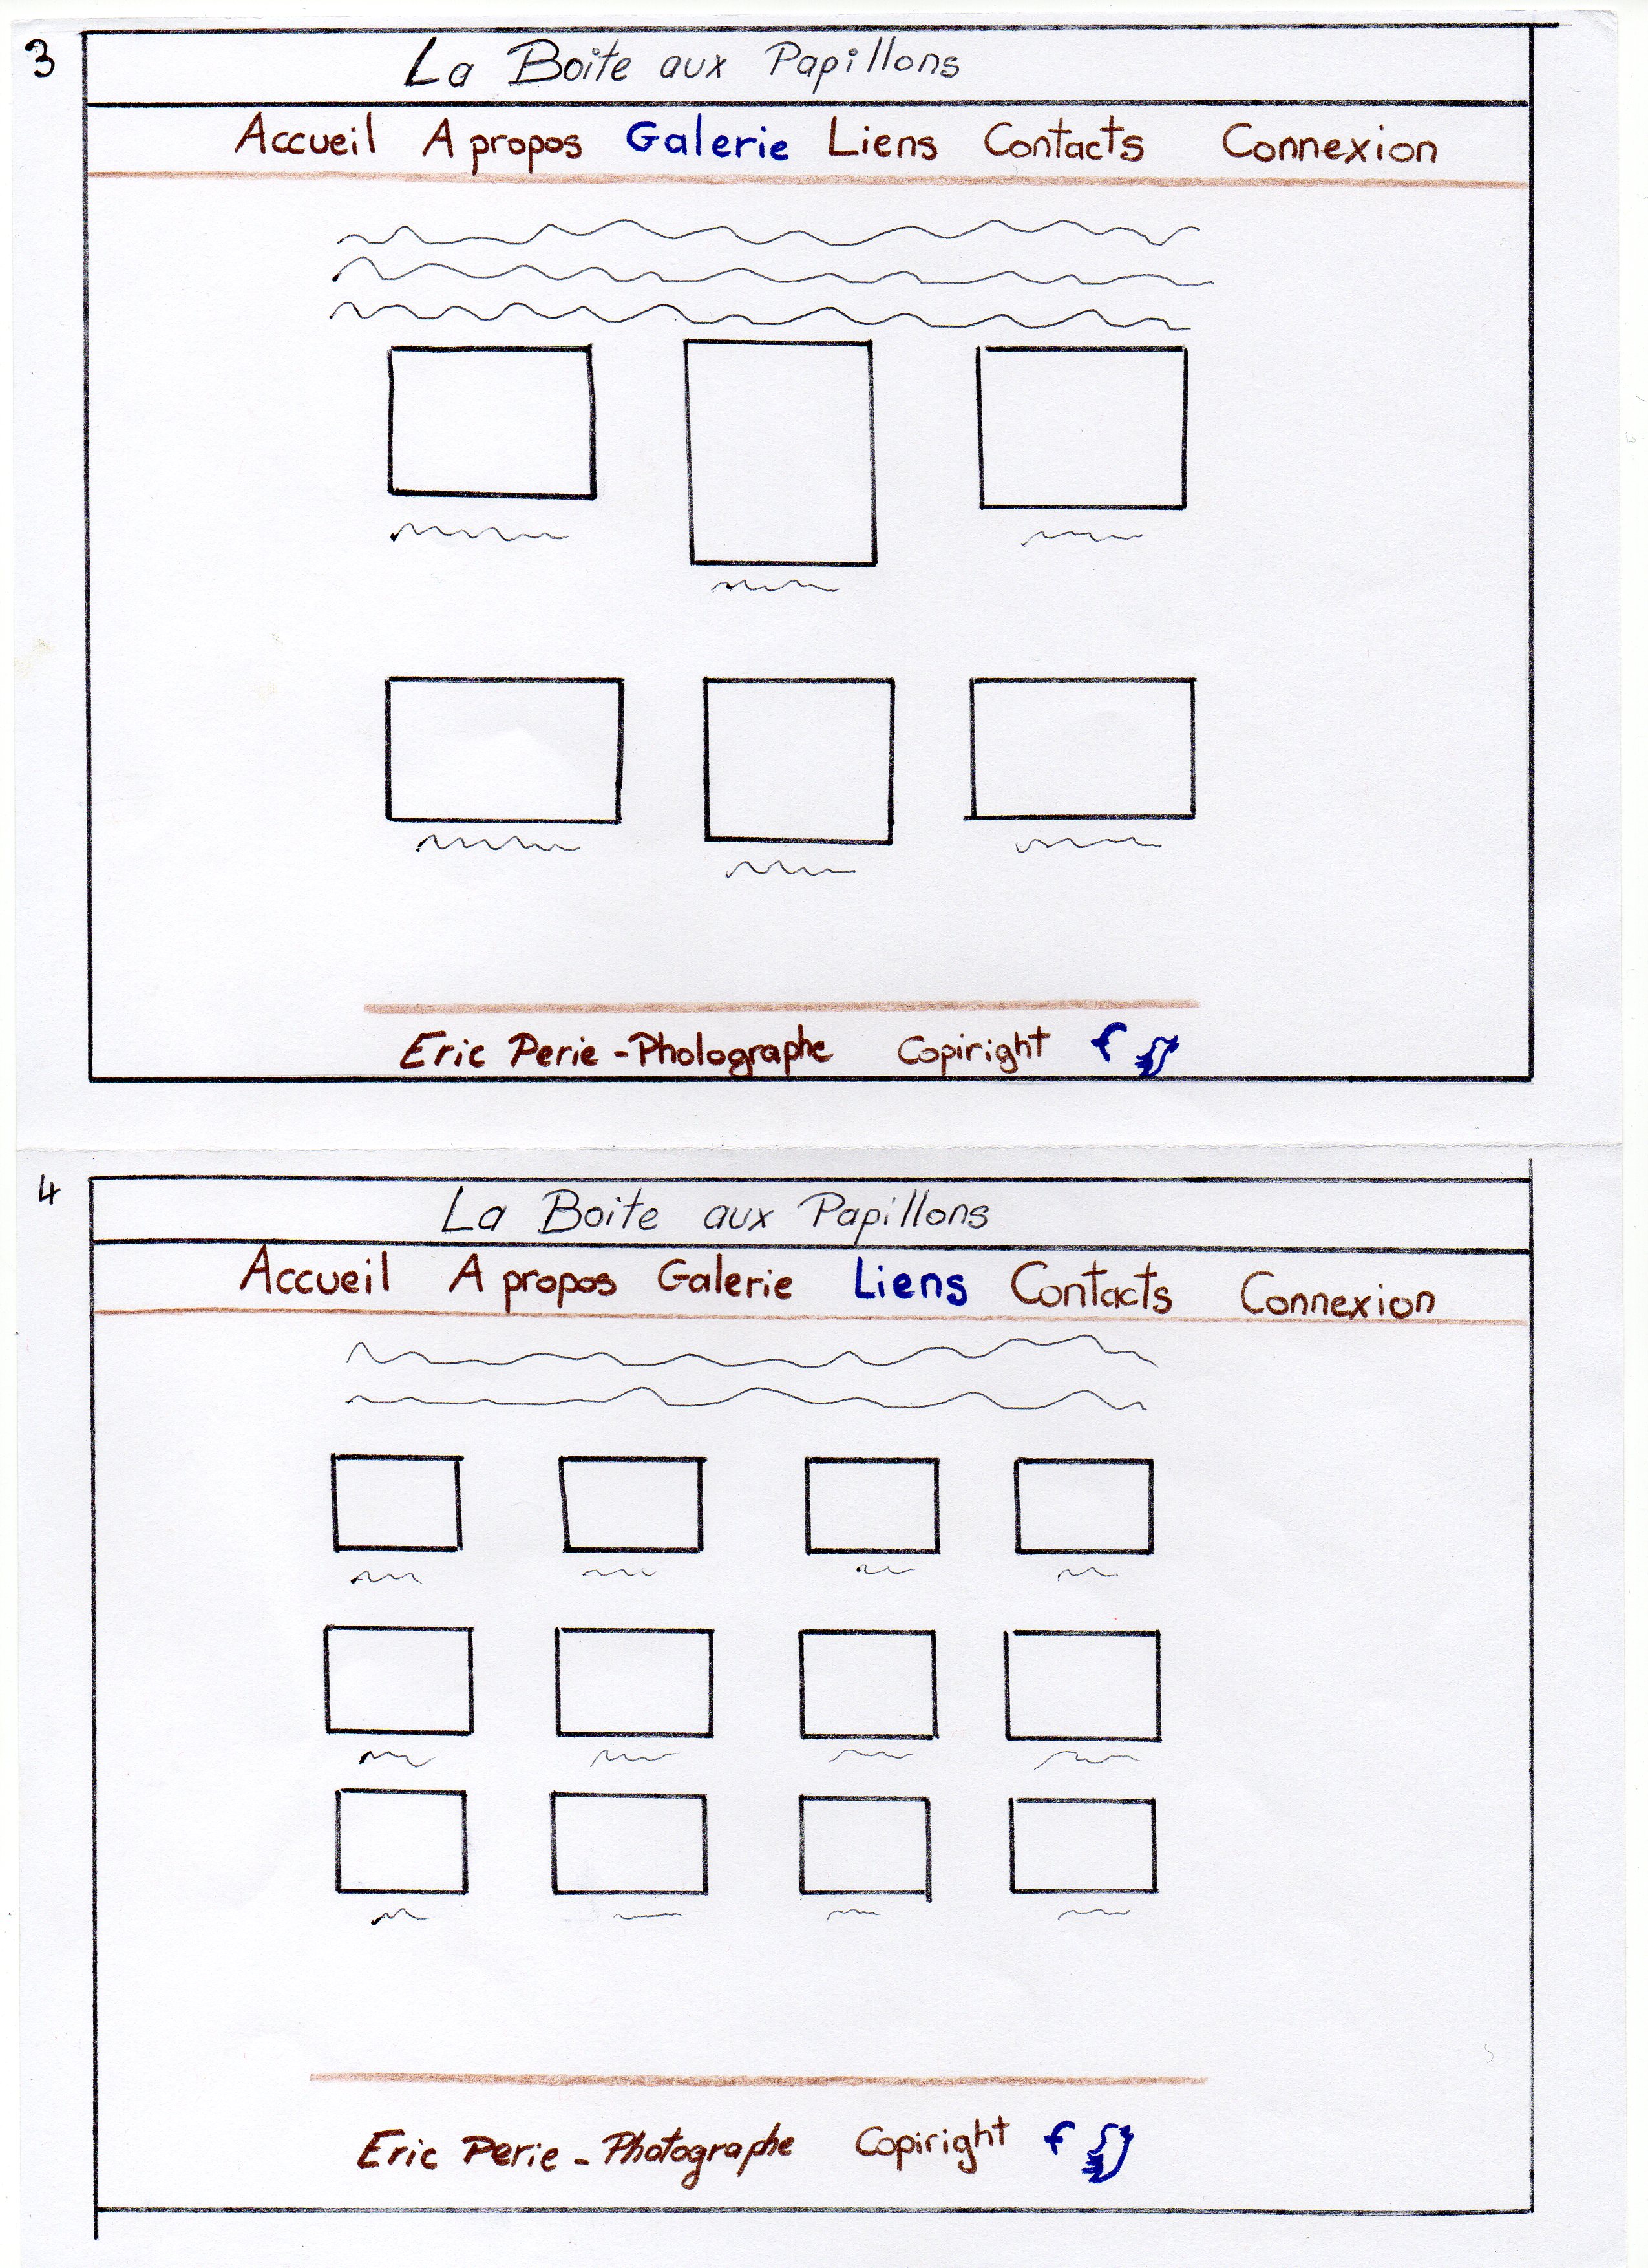 3
La Boite aux Papillons
Accueil A propos Galerie Liens Contacts Connexion
Eric Perie - Photographe Copiright f
4
La Boite aux Papillons
Accueil A propos Galerie Liens Contacts Connexion
Eric Perie - Photographe Copiright f